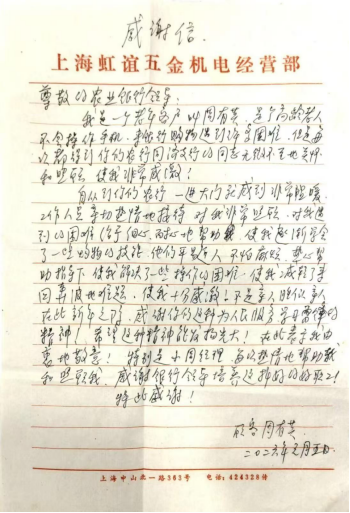 感谢信.
上海虹谊五金机电经营部
尊敬的农业银行领导:
我是一个老年客户叫周有英, 是个高龄老人
不会操作手机, 来银行购物遇到许多困难, 但是每
次都得到你们农行同济支行的同志无微不至地关怀
和照顾, 使我非常感激!
自从到你们农行一进大门就感到非常温暖,
工作人员亲切热情地接待 对我非常照顾, 对我遇
到的困难 细心耐心地帮助 使我逐渐学会
了一些购物的技能. 他们平易近人 不怕麻烦, 热心帮
助指导下, 使我解决了一些操作的困难, 使我
使我十分感激! 不是亲人胜似亲人
在此新年之际, 感谢你们这种为人民服务学习雷锋的
精神! 希望这种精神能发扬光大! 在此表示我由
衷地敬意! 特别是小周经理 每次热情地帮助我
和照顾我. 感谢银行领导培养这样好的好职工!
特此感谢!
顾客周有英
二〇二六年元月五日.
上海中山北一路363号 电话: 424320转